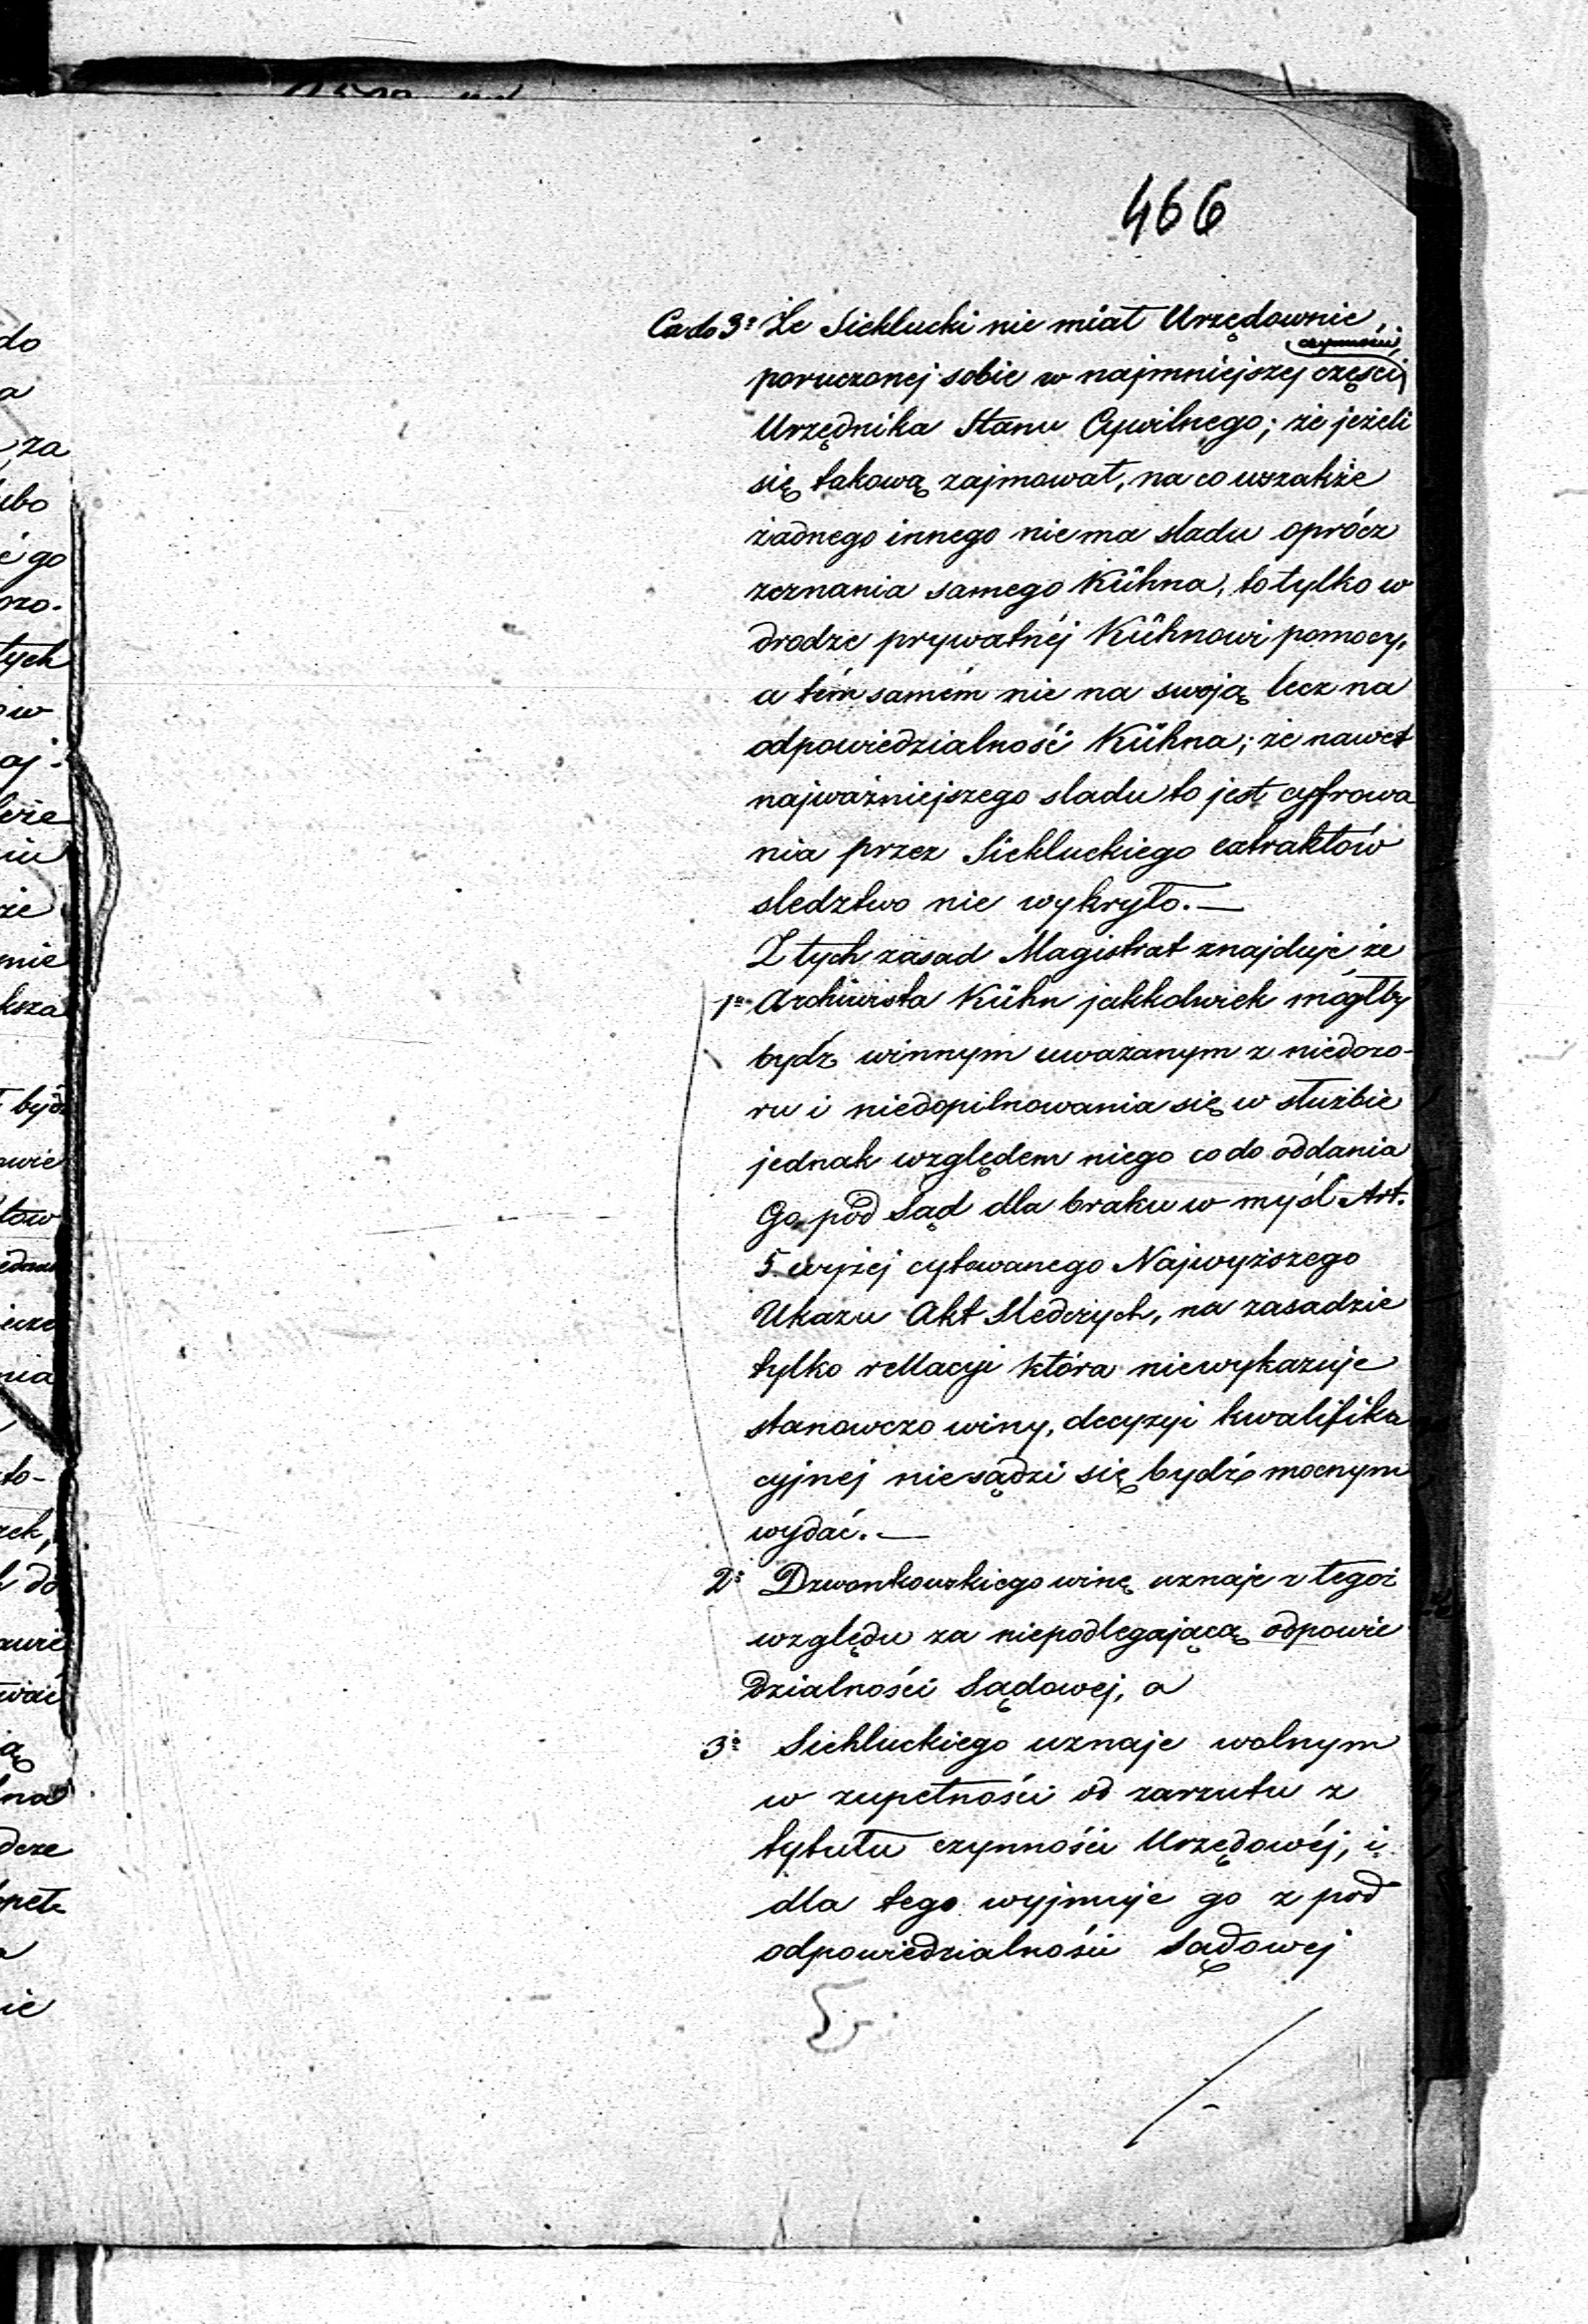 466
Co do 3o Że Siekłucki nie miał Urzędownie
czynności,
poruczonej sobie w najmniejszej części
Urzędnika Stanu Cywilnego; że jeżeli
się takową zajmował, na co wszakże
żadnego innego nie ma sladu oprócz
zeznania samego Kühna, to tylko w
drodze prywatnéj Kühnowi pomocy,
a tém samém nie na swoją lecz na
odpowiedzialność Kühna; że nawet
najważniejszego sladu to jest cyfrowa
nia przez Siekłuckiego extraktów
sledztwo nie wykryło. —
Z tych zasad Magistrat znajduje że
1o Archiwista Kühn jakkolwiek mógłby
bydź winnym uważanym z niedozo-
ru i niedopilnowania się w służbie
jednak względem niego co do oddania
Go pod Sąd dla braku w myśl Art.
5 wyżej cytowanego Najwyższego
Ukazu Akt Sledczych, na zasadzie
tylko rellacyi która niewykazuje
stanowczo winy, decyzyi kwalifika
cyjnej niesądzi się bydź mocnym
wydać. —
2o Dzwonkowskiego winę uznaje z tegoż
względu za niepodlegającą odpowie
dzialności Sądowej, a
3o Siekłuckiego uznaje wolnym
w zupełności od zarzutu z
tytułu czynności Urzędowéj, i
dla tego wyjmuje go z pod
odpowiedzialności Sądowej
do
a
za
ubo
go
ozo.
tych
ów